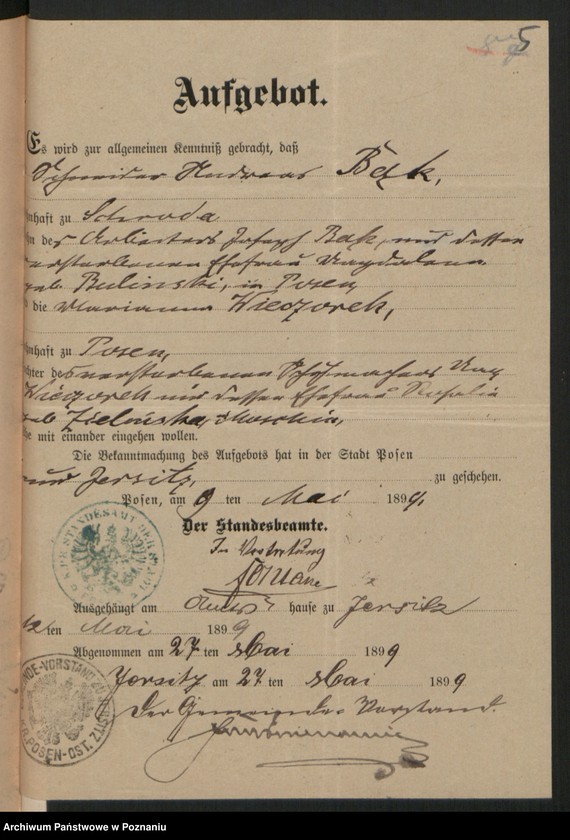 5
Aufgebot.
Es wird zur allgemeinen Kenntniß gebracht, daß
Schneider Andreas Bak,
nhaft zu Schroda
n des Arbeiters Joseph Bak, und dessen
verstorbenen Ehefrau Magdalena
geb. Bulinski, in Posen,
die Marianna Wieczorek,
nhaft zu Posen,
hter des verstorbenen Schuhmachers
und dessen Ehefrau Rosalie
geb Zielinska,
he mit einander eingehen wollen.
Die Bekanntmachung des Aufgebots hat in der Stadt Posen
und Jersitz, zu geschehen.
Posen, am 9 ten Mai 1899.
Der Standesbeamte.
In Vertretung
Ausgehängt am hause zu Jersitz
ten Mai 1899
Abgenommen am 27 ten Mai 1899
Jersitz am 27 ten Mai 1899
Der Gemeinde-Vorstand.
STANDESAMT DER STADT
NDE-VORSTAND ZU
POSEN-OST.
Archiwum Państwowe w Poznaniu